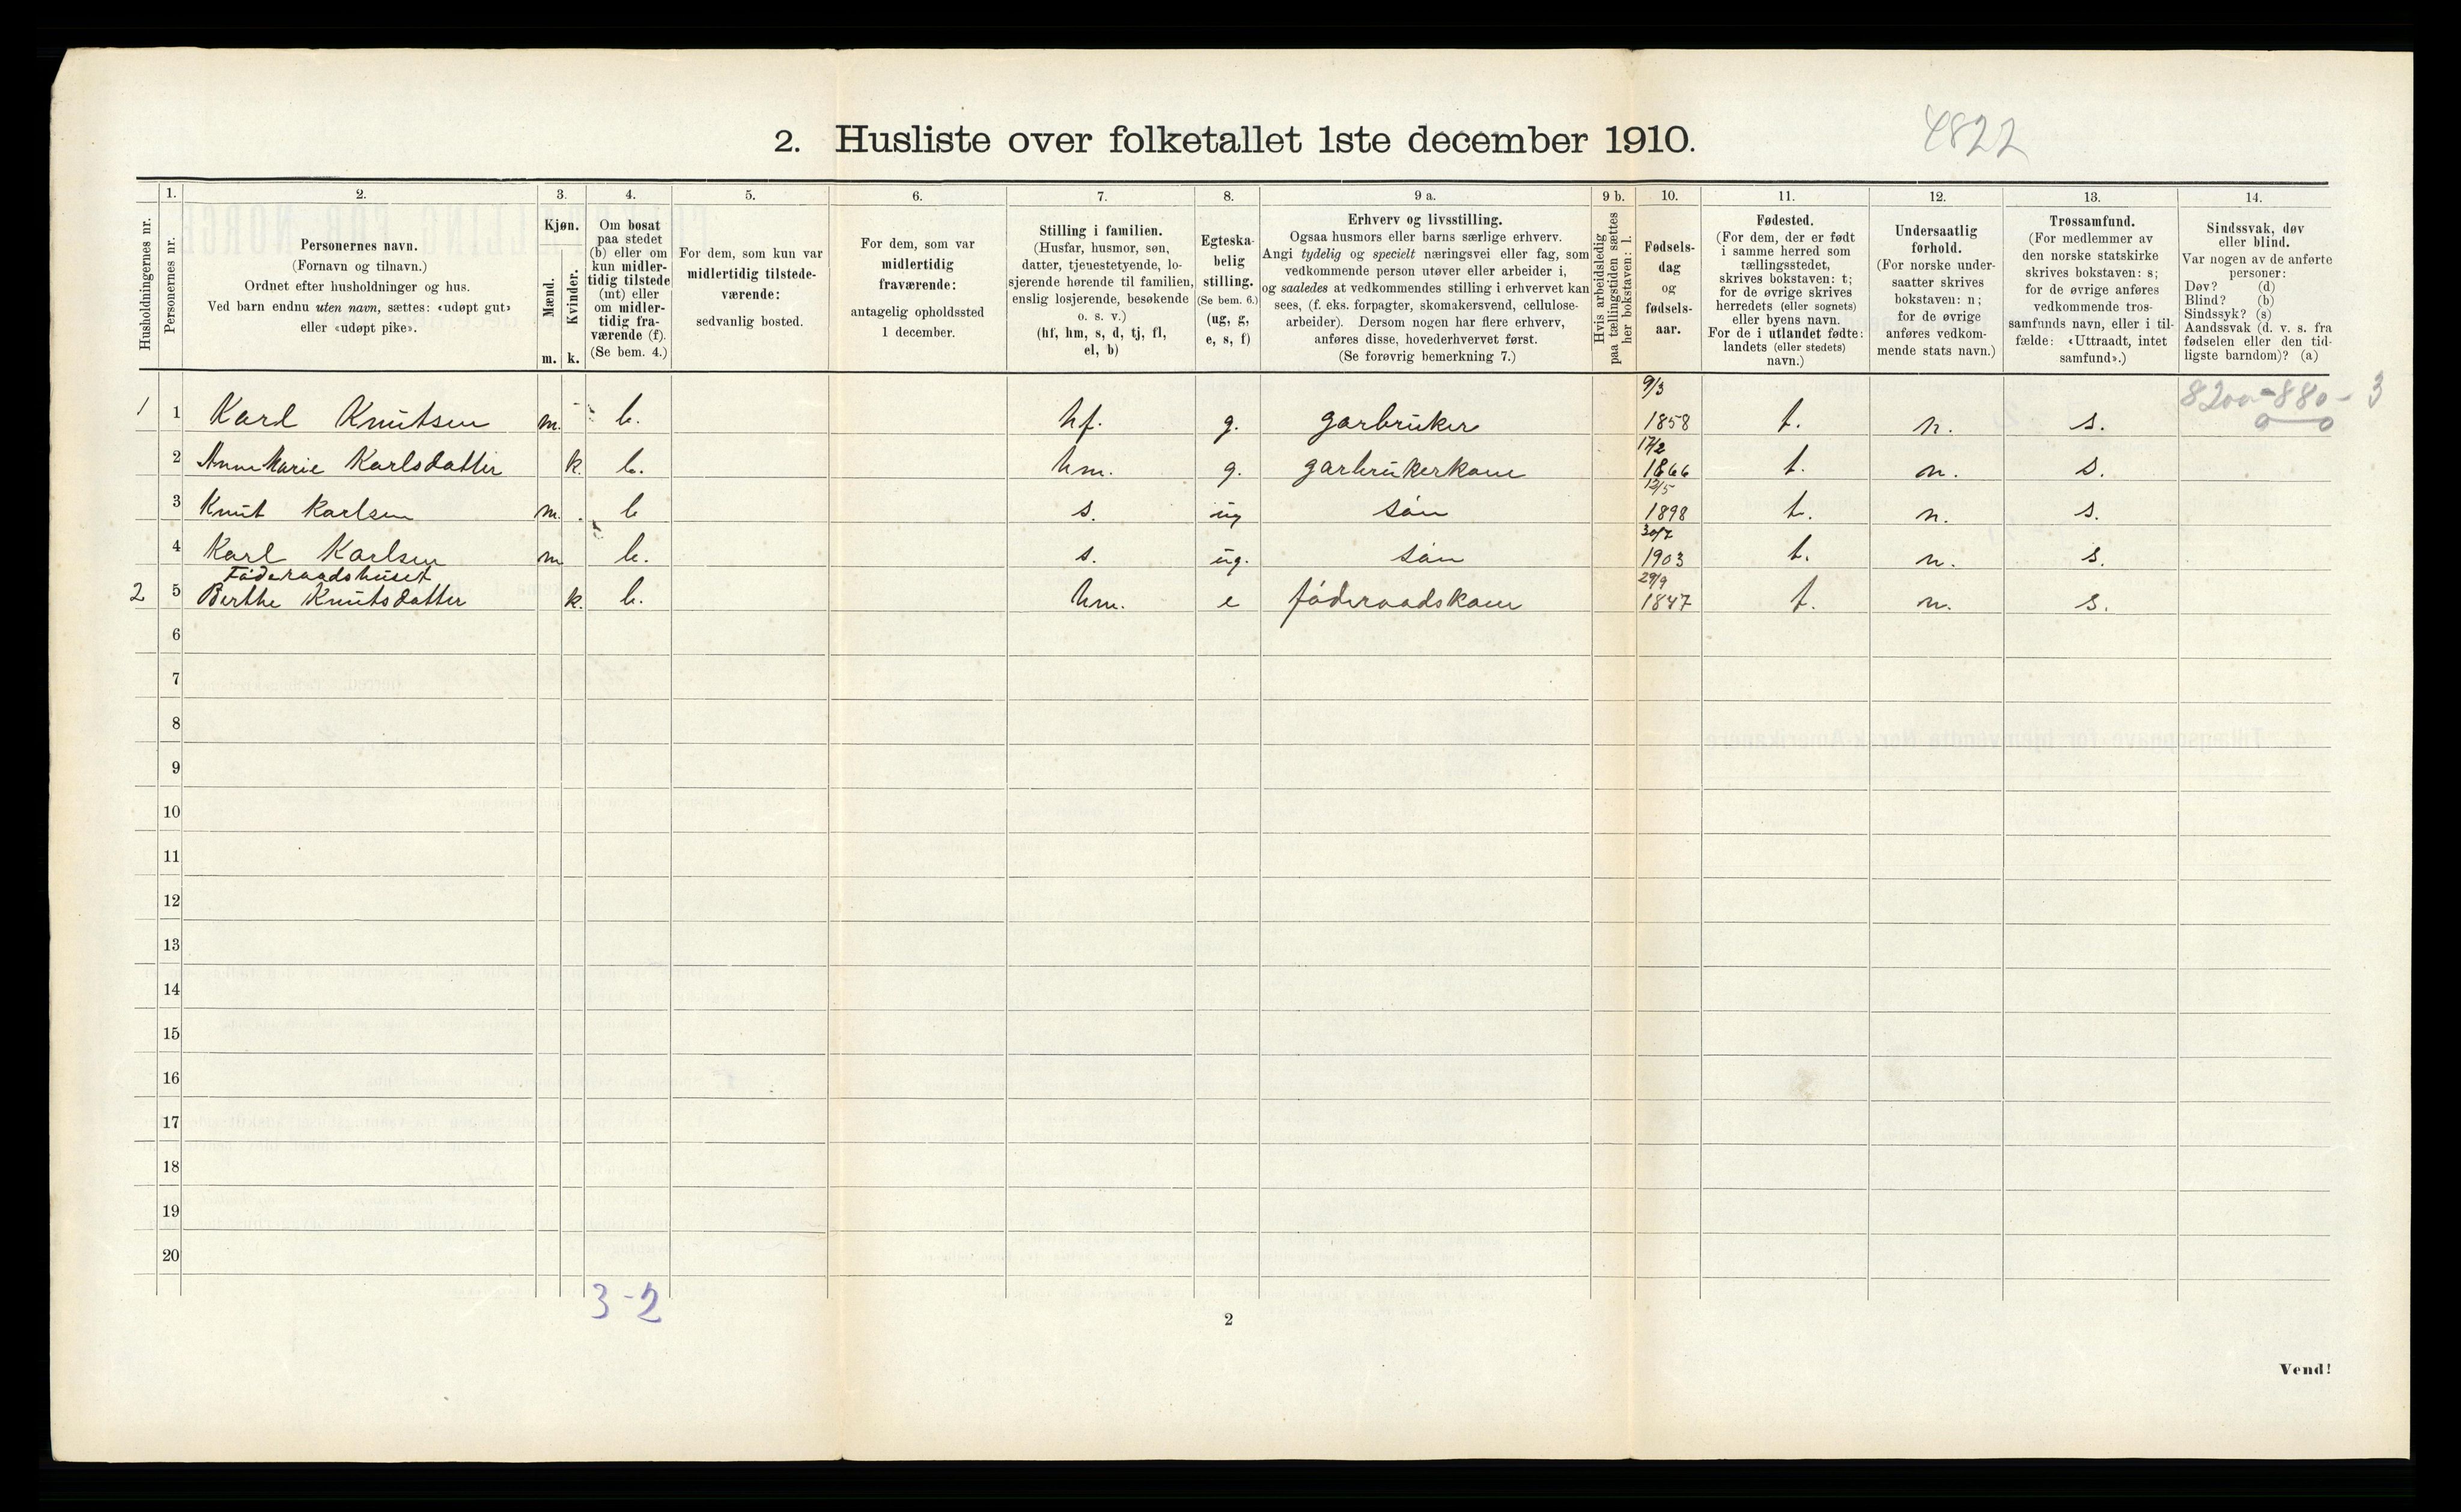 2. Husliste over folketallet 1ste december 1910.
4822
Husholdningernes nr.
1.
Personernes nr.
2.
Personernes navn.
(Fornavn og tilnavn.)
Ordnet efter husholdninger og hus.
Ved barn endnu uten navn, sættes: «udøpt gut»
eller «udøpt pike».
3.
Kjøn.
Mænd.
Kvinder.
m. k.
4.
Om bosat
paa stedet
(b) eller om
kun midler-
tidig tilstede
(mt) eller
om midler-
tidig fra-
værende (f).
(Se bem. 4.)
5.
For dem, som kun var
midlertidig tilstede-
værende:
sedvanlig bosted.
6.
For dem, som var
midlertidig
fraværende:
antagelig opholdssted
1 december.
7.
Stilling i familien.
(Husfar, husmor, søn,
datter, tjenestetyende, lo-
sjerende hørende til familien,
enslig losjerende, besøkende
o. s. v.)
(hf, hm, s, d, tj, fl,
el, b)
8.
Egteska-
belig
stilling.
(Se bem. 6.)
(ug, g,
e, s, f)
9 a.
Erhverv og livsstilling.
Ogsaa husmors eller barns særlige erhverv.
Angi tydelig og specielt næringsvei eller fag, som
vedkommende person utøver eller arbeider i,
og saaledes at vedkommendes stilling i erhvervet kan
sees, (f. eks. forpagter, skomakersvend, cellulose-
arbeider). Dersom nogen har flere erhverv,
anføres disse, hovederhvervet først.
(Se forøvrig bemerkning 7.)
9 b.
Hvis arbeidsledig
paa tællingstiden sættes
her bokstaven: l.
10.
Fødsels-
dag
og
fødsels-
aar.
11.
Fødested.
(For dem, der er født
i samme herred som
tællingsstedet,
skrives bokstaven: t;
for de øvrige skrives
herredets (eller sognets)
eller byens navn.
For de i utlandet fødte:
landets (eller stedets)
navn.)
12.
Undersaatlig
forhold.
(For norske under-
saatter skrives
bokstaven: n;
for de øvrige
anføres vedkom-
mende stats navn.)
13.
Trossamfund.
(For medlemmer av
den norske statskirke
skrives bokstaven: s;
for de øvrige anføres
vedkommende tros-
samfunds navn, eller i til-
fælde: «Uttraadt, intet
samfund».)
14.
Sindssvak, døv
eller blind.
Var nogen av de anførte
personer:
Døv? (d)
Blind? (b)
Sindssyk? (s)
Aandssvak (d. v. s. fra
fødselen eller den tid-
ligste barndom)? (a)
8200-880-3
0 0
1 1 Karl Knutsen m. b. hf. g. garbruker 9/3 1858 t. n. s.
2 Anne Marie Karlsdatter k. b. hm. g. garbrukerkone 17/2 1866 t. n. s.
3 Knut Karlsen m. b s. ug søn 12/5 1898 t. n. s.
4 Karl Karlsen m b. s. ug. søn 30/7 1903 t. n. s.
Føderaadshuset
2 5 Berthe Knutsdatter k. b. hm. e føderaadskone 29/9 1847 t. n. s.
6
7
8
9
10
11
12
13
14
15
16
17
18
19
20
3-2
2
Vend!